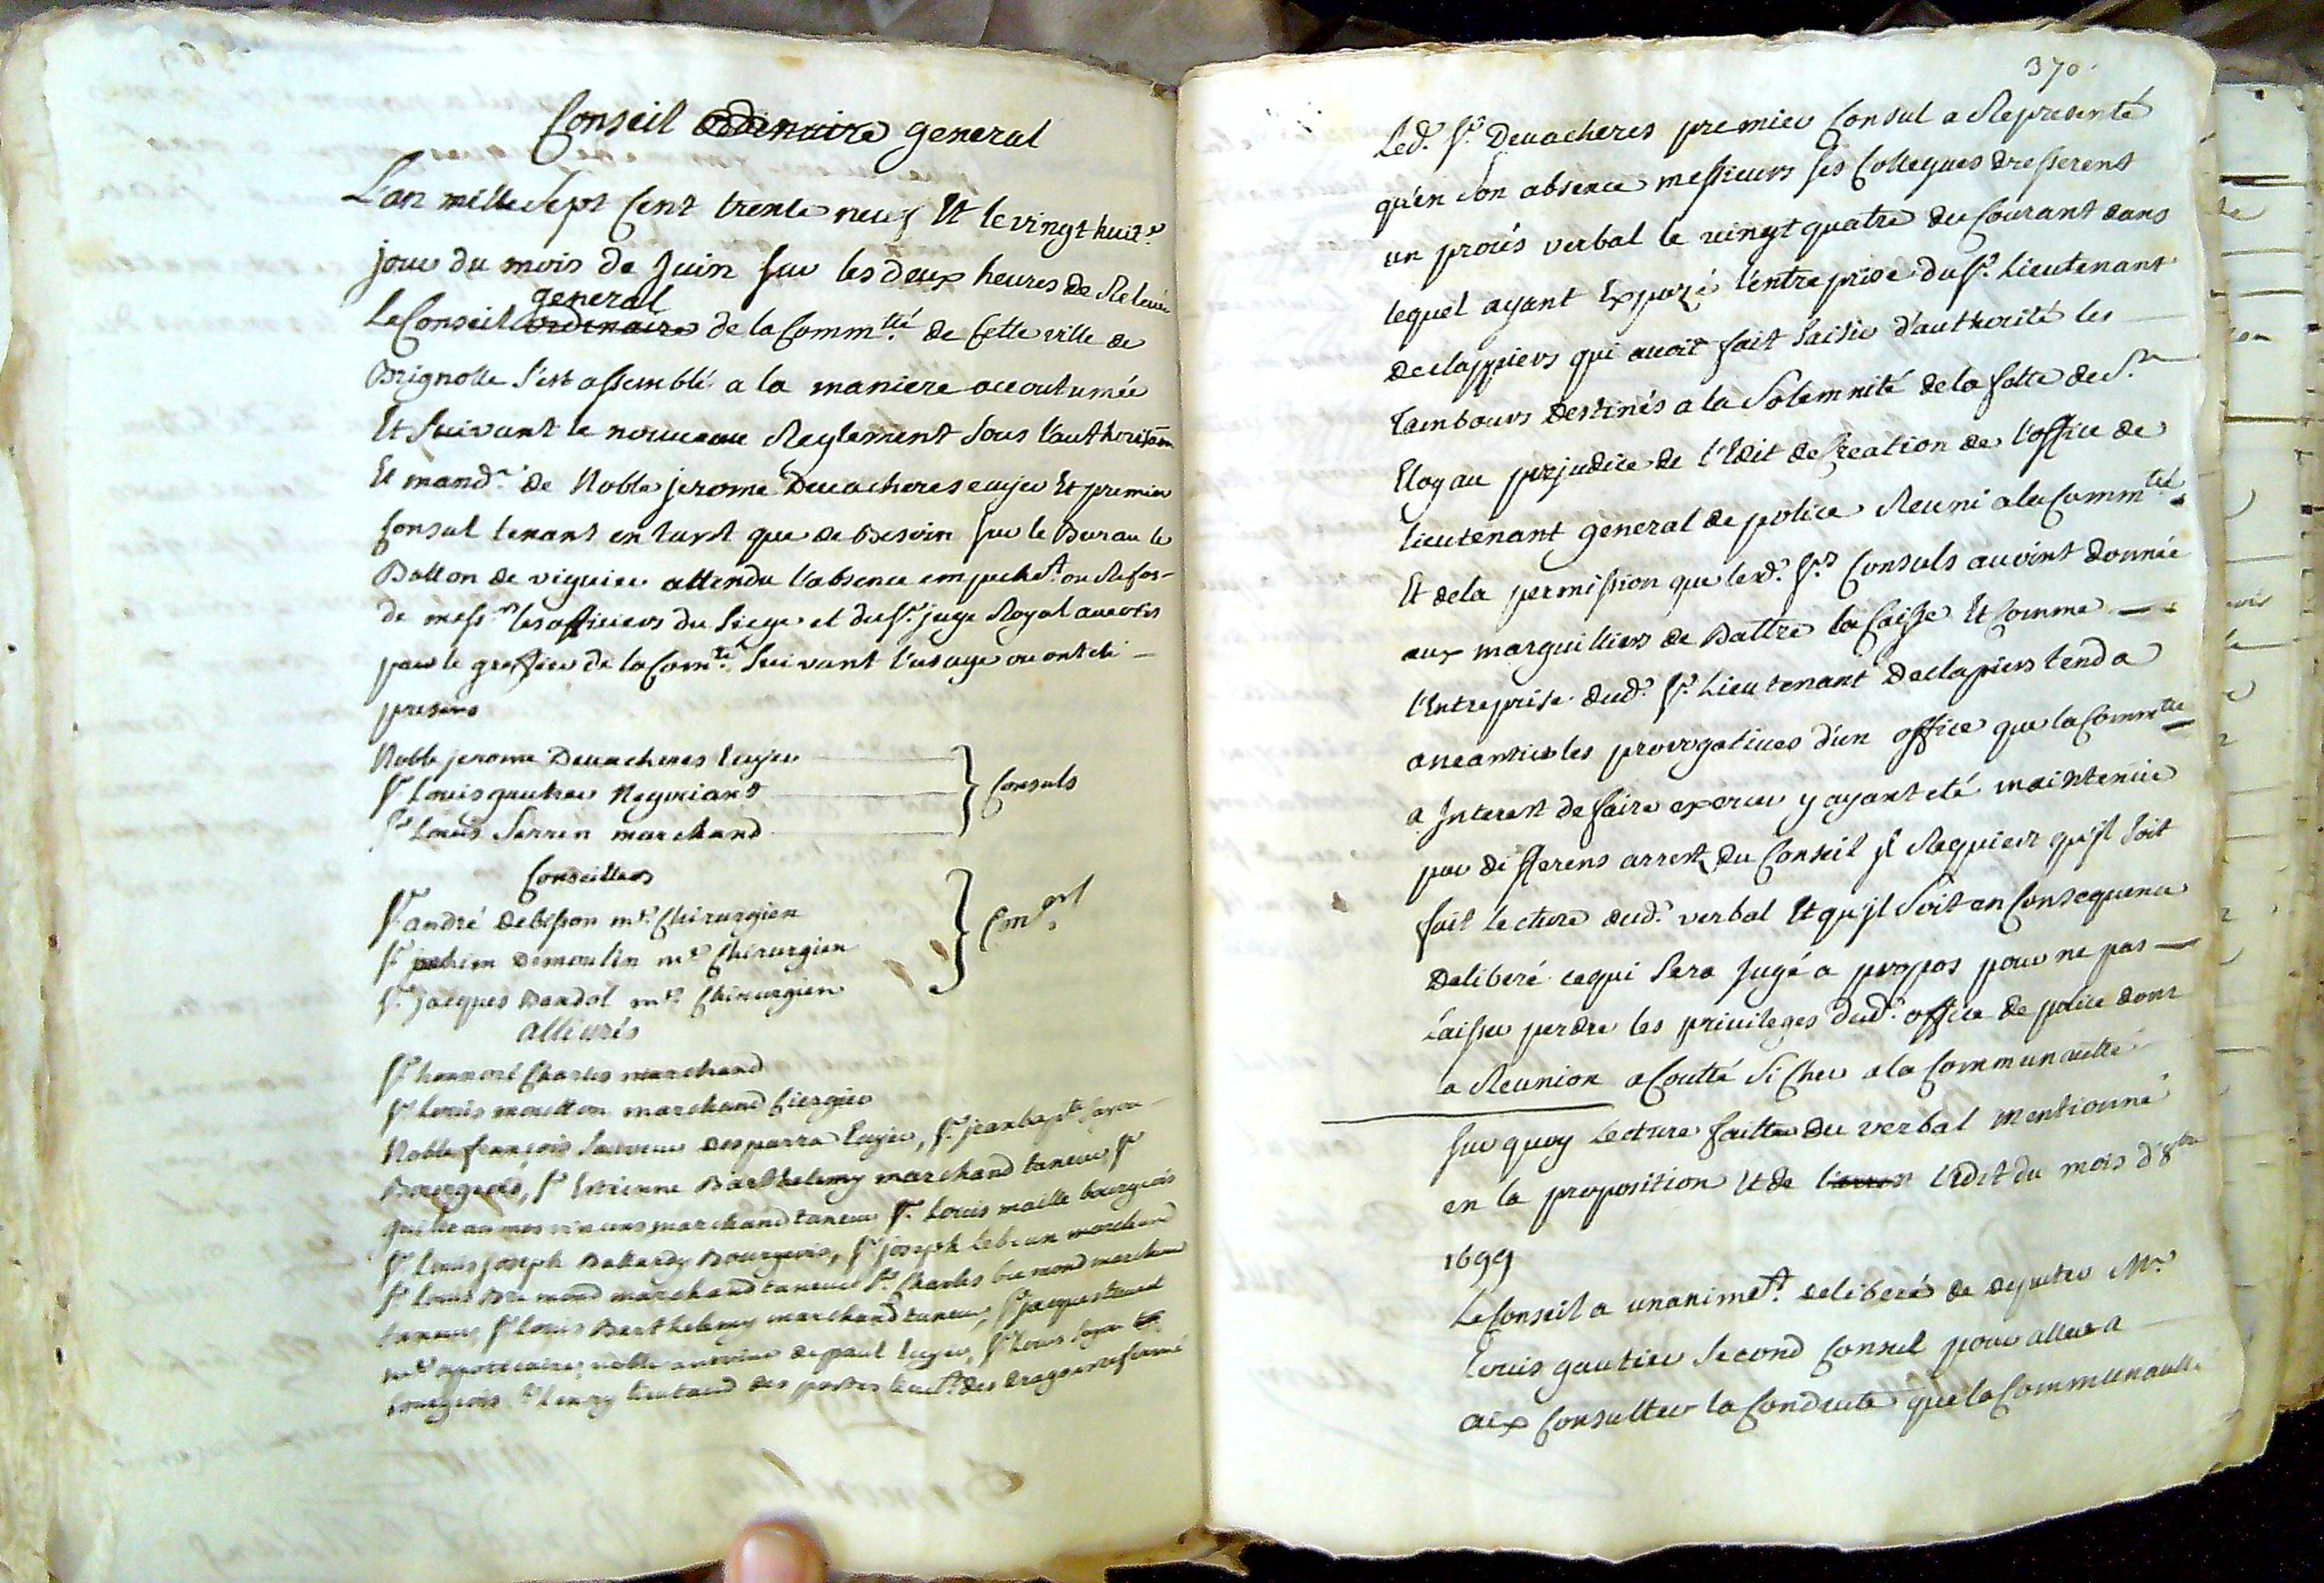 Conseil ordinaire general
L'an mille Sept Cent trente neuf Et le vingt huit.e
jour du mois de Juin sur les deux heures de Relevée
general
Le Conseil ordinaire de la Comm.tté de Cette ville de
Brignolle s'est assemblé a la maniere accoutumée
Et suivant le nouveau Reglement sous l'authorisaon
Et mand.t de Noble jerome Devacheres ecuyer Et premier
Consul tenant en tant que de Besoin sur le Bureau le
Batton de viguier attendu l'absence empeche.t ou Refus
de mess.rs les officiers du siege et du s.r juge Royal avertis
par le greffier de la Com.té suivant l'usage ou ont eté
presens
Noble jerome Devacheres Ecuyer
S.r Louis gautier Negociant
S.r Louis Serrin marchand
Consuls
Conseillers
S.r andré debisson m.e Chirurgien
S.r Demoulin m.e Chirurgien
S.r jacques Bandol m.e Chirurgien
allivrés
S.r honnoré Charles marchand
S.r Louis moutton marchand Ciergier
Noble françois Sauveur desparra Ecuyer, S.r jean bap.te
Bourgeois, S.r Estienne Barthelemy marchand taneur S.r
marchand taneur S.r Louis maille bourgeois
S.r Louis joseph Bourgeois, S.r joseph lebrun marchand
S.r Louis Bremond marchand taneur S.r Charles bremond marchand
taneur, S.r Louis Barthelemy marchand taneur, S.r jacques
m.e apoticaire, noble de paul Ecuyer, S.r Louis
bourgeois S.r lieutaud des postes lieu.t des dragons reformé
370
Led.t S.r Devacheres premier Consul a Representé
qu'en son absence messieurs ses Collegues dresserent
un procés verbal le vingt quatre du Courant dans
lequel ayant Exposé l'entreprise du S.r Lieutenant
declapiers qui avoit fait saisir d'authorité les
Tambours Destinés a la Solemnité de la fette de S.t
Eloy au prejudice de l'Edit de Creation de l'office de
lieutenant general de police Reuni a la Comm.tté
Et de la permission que lesd.s S.rs Consuls avoint donnée
aux marguilliers de Battre la Caisse Et Comme
l'Entreprise dud.t S.r Lieutenant Declapiers tend a
aneantir les prerogatives d'un office que la Comm.tté
a Interest de faire exercer y ayant eté maintenüe
par differens arrests du Conseil il Requiert qu'il soit
fait lecture dud.t verbal Et qu'il soit en Consequence
Deliberé ce qui sera Jugé a propos pour ne pas
Laisser perdre les privileges dud.t office de police dont
la Reunion a Coutté si Cher a la Communautté
Sur quoy Lecture faitte du verbal mentionné
en la proposition Et de l'arrest l'Edit du mois d'8bre
1699
Le Conseil a unanime.t deliberé de deputer M.r
Louis gautier second Consul pour aller a
aix Consulter la Conduite que la Communautté